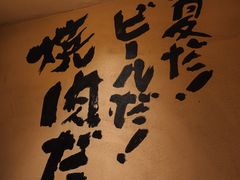 夏だ!
ビールだ!
焼肉だ